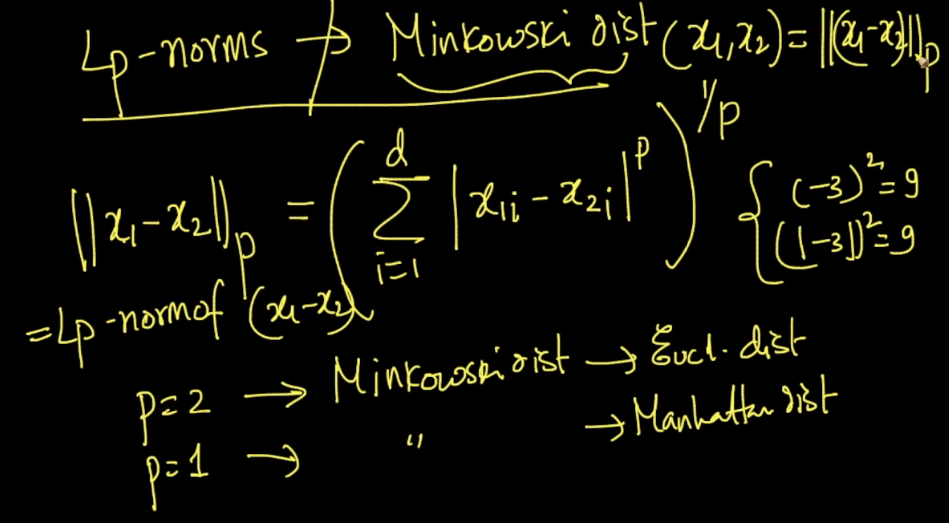 Lp-norms → Minkowski dist (x₁,x₂) = ||(x₁-x₂)||ₚ
||x₁-x₂||ₚ = (∑ᵢ₌₁ᵈ |x₁ᵢ - x₂ᵢ|ᵖ)^1/p { (-3)²=9
(|-3|)²=9
= Lp-norm of (x₁-x₂)
p=2 → Minkowski dist → Eucl. dist
p=1 → " → Manhattan dist